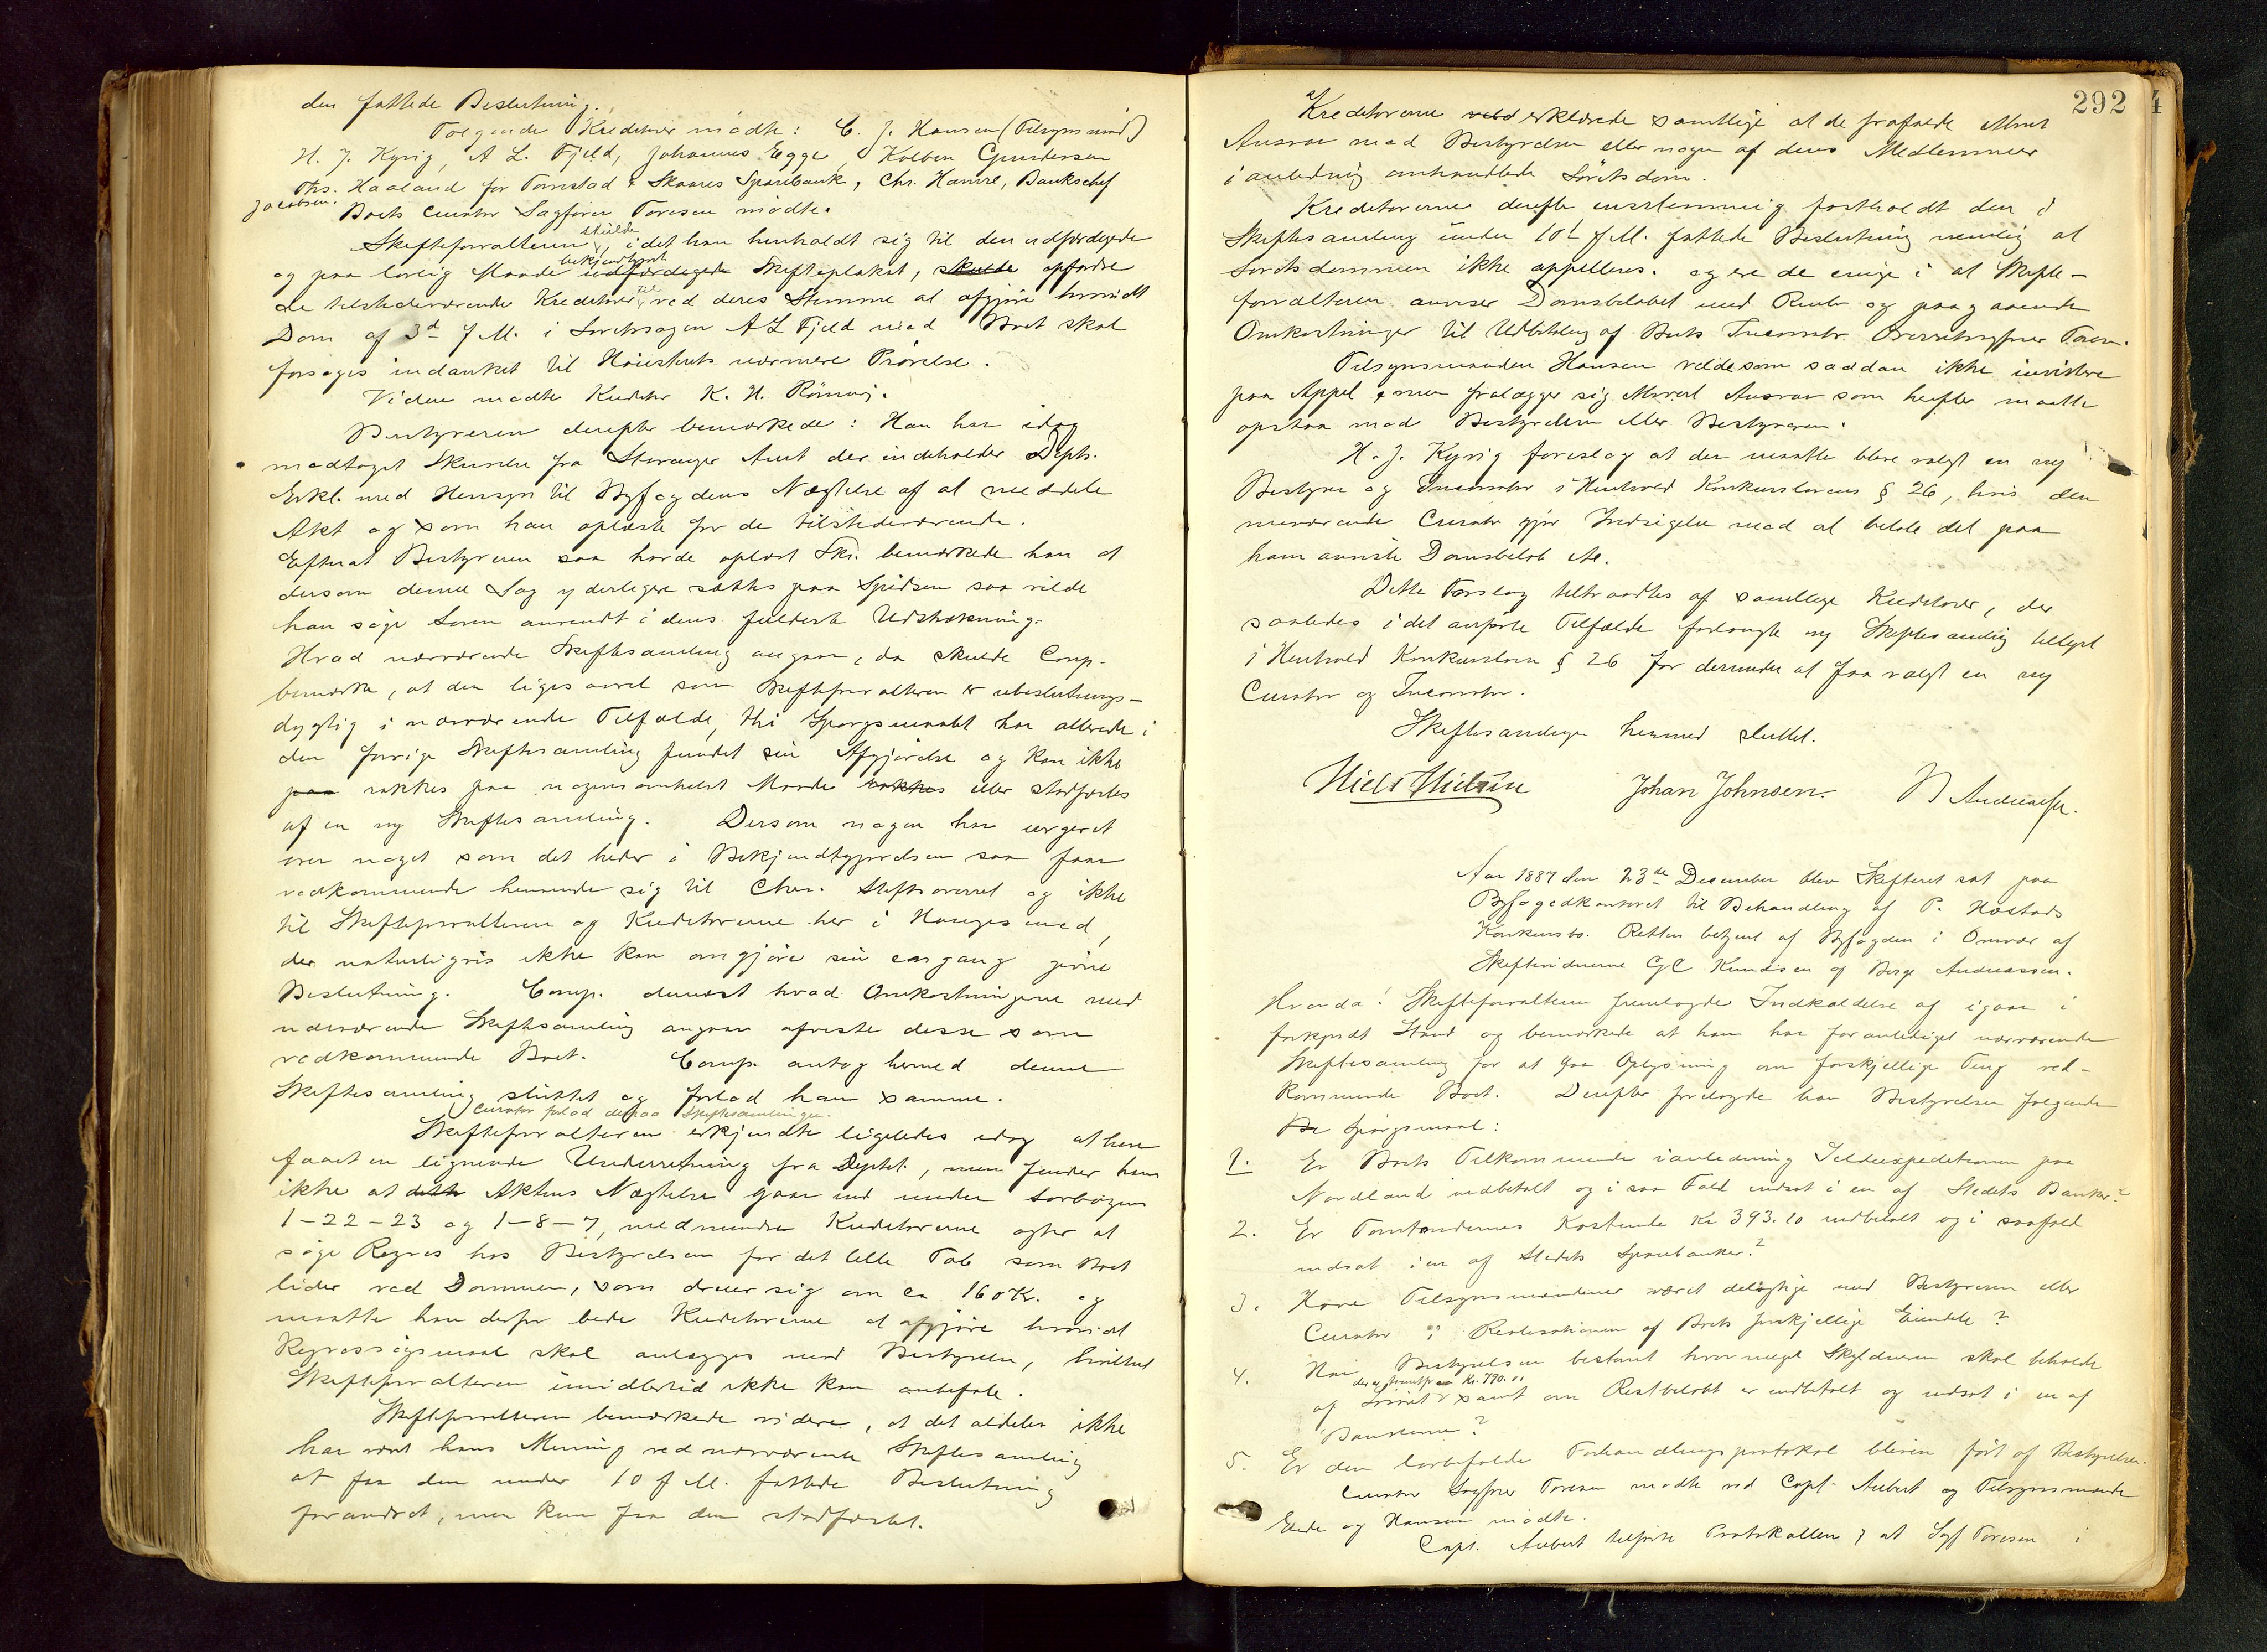 den fattede Beslutning.
Følgende Kreditorer mødte: C. J. Hansen (Tilsynsmand)
H. J. Kyvig, A L. Fjeld, Johannes Egge, Kolben Gundersen
Ths. Haaland for Torvestad & Skaares Sparebank, Chr. Hamre, Bankschef
Jacobsen. Boets Curator Sagfører Toresen mødte.
Skifteforvalteren skulde, idet han henholdt sig til den udfærdigede
og paa lovlig Maade udfærdigede bekjendtgjort Skifteplakat, skulde opfordre
de tilstedeværende Kreditorer til ved deres Stemme at afgjøre hvorvidt
Dom af 3d f M. i Søretssagen A L Fjeld mod Boet skal
forsøges indanket til Høiesterets nærmere Prøvelse.
Videre mødte Kreditor K. H. Rönnevig.
Bestyreren derefter bemærkede: Han har idag
modtaget Skrivelse fra Stavanger Amt der indeholder Depts.
Erkl. med Hensyn til Byfogdens Nægtelse af at meddele
Akt og som han oplæste for de tilstedeværende.
Efterat Bestyreren saa havde oplæst Skr. bemærkede han at
dersom denne Sag yderligere sættes paa Spidsen saa vilde
han søge Loven anvendt i dens fuldeste Udstrækning.
Hvad nærværende Skiftesamling angaar, da skulde Comp.
bemærke, at den ligesaavel som Skifteforvalteren er ubeslutnings-
dygtig i nærværende Tilfælde, thi Spørgsmaalet har allerede i
den forrige Skiftesamling fundet sin Afgjørelse og kan ikke
paa rokkes paa nogensomhelst Maade rokkes eller stadfæstes
af en ny Skiftesamling. Dersom nogen har
over noget som det heder i Bekjendtgjørelsen saa faar
vedkommende henvende sig til Chra. Stiftsoverret og ikke
til Skifteforvalteren og Kreditorerne her i Haugesund,
der naturligvis ikke kan omgjøre sin engang givne
Beslutning. Comp. dernæst hvad Omkostningerne med
nærværende Skiftesamling angaar afviste disse som
vedkommende Boet. Comp. antog hermed denne
Skiftesamling sluttet og forlod han samme.
Curator forlod derpaa Skiftesamlingen.
Skifteforvalteren erkjendte ligeledes idag at have
faaet en lignende Underretning fra Deptet, men finder han
ikke at dette Aktens Nægtelse gaar ind under Lovbogens
1-22-23 og 1-8-7, medmindre Kreditorerne agter at
søge Regres hos Bestyrelsen for det lille Tab som Boet
lider ved Dommen, som dreier sig om ca 160 Kr. og
maatte han derfor bede Kreditorerne at afgjøre hvorvidt
Regressøgsmaal skal anlægges mod Bestyrelsen, hvilket
Skifteforvalteren imidlertid ikke kan anbefale.
Skifteforvalteren bemærkede videre, at det aldeles ikke
har været hans Mening ved nærværende Skiftesamling
at faa den under 10 f M. fattede Beslutning
forandret, men kun faa den stadfæstet.
292
Kreditorerne erklærede samtlige at de frafaldt Alt
Ansvar mod Bestyrelsen eller nogen af dens Medlemmer
i anledning omhandlede Søretsdom.
Kreditorerne derefter enstemmig fastholdt den i
Skiftesamling under 10de f M. fattede Beslutning nemlig at
Søretsdommen ikke appelleres. og ere de enige i at Skifte-
forvalteren anviser Domsbeløbet med Renter og paagaaende
Omkostninger til Udbetaling af Boets Incassator Overretssagfører Toresen.
Tilsynsmanden Hansen vilde som saadan ikke insistere
paa Appel, men fralægger sig Ansvar som herefter maatte
opstaa mod Bestyrelsen eller Bestyreren.
H. J. Kyvig foreslog at der maatte blive valgt en ny
Bestyrer og Incassator i Henhold Konkurslovens § 26, hvis den
nuværende Curator gjør Indsigelse mod at betale det paa
ham anviste Domsbeløb etc.
Dette Forslag tiltraadtes af samtlige Kreditorer, der
saaledes i det anførte Tilfælde forlangte ny Skiftesamling tillyst
i Henhold Konkursloven § 26 for derunder at faa valgt en ny
Curator og Incassator.
Skiftesamlingen hermed sluttet.
Niels Nielsen Johan Johnsen. B Andreassen.
Aar 1887 den 23de December blev Skifteret sat paa
Byfogedkontoret til Behandling af P. Høstads
Konkursbo. Retten betjent af Byfogden i Overvær af
Skiftevidnerne GC Knudsen og Berge Andreassen.
Hvorda! Skifteforvalteren fremlagde Indkaldelse af igaar i
forkyndt Stand og bemærkede at han har foranlediget nærværende
Skiftesamling for at faa Oplysning om forskjellige Ting ved-
kommende Boet. Derefter forelagde han Bestyrelsen følgende
Spørgsmaal:
1. Er Boets Tilkommende i anledning Sildeexpeditionen paa
Nordland indbetalt og i saa Fald indsat i en af Stedets Banker?
2. Er Tomtøndernes Kostende Kr 393.10 indbetalt og i saafald
indsat i en af Stedets Sparebanker?
3. Have Tilsynsmændene været delagtige med Bestyreren eller
Curator i Realisationen af Boets forskjellige Eiendele?
4. Har Bestyrelsen bestemt hvor meget Skyldneren skal beholde
af samt om Restbeløbet er indbetalt og indsat i en af
Bankerne?
5. Er den lovbefalede Forhandlingsprotokol bleven ført af Bestyrelsen.
Curator Sagfører Toresen mødte ved Capt. Aubert og Tilsynsmændene
Eide og Hansen mødte.
Capt. Aubert tilførte Protokollen, at Sagf Toresen i